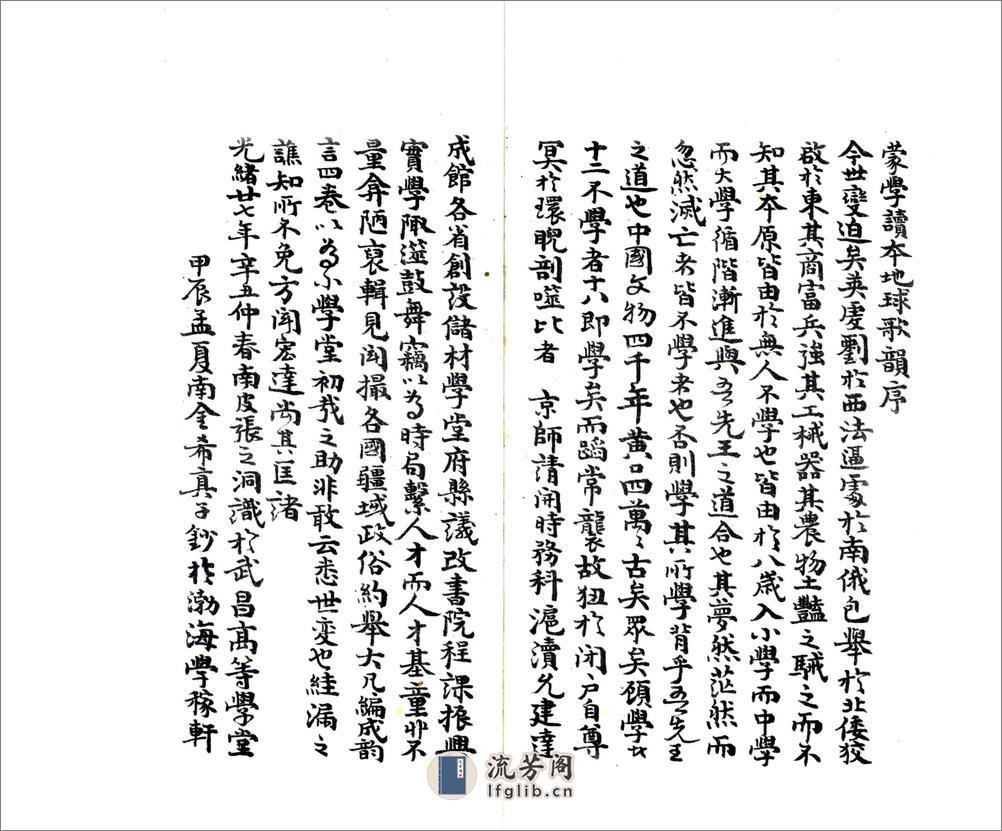 蒙學讀本地球歌韻序
今世變迫矣英虔劉於西法逼處於南俄包舉於北倭狡
啟於東其商富兵強其工械器其農物土豔之駴之而不
知其本原皆由於無人不學也皆由於八歲入小學而中學
而大學循階漸進與吾先王之道合也其夢然茫然而
忽然滅亡者皆不學者也否則學其所學背乎吾先王
之道也中國文物四千年黃口四萬〻古矣眾矣顧學者
十二不學者十八即學矣而蹈常襲故狃於閉户自尊
冥於環睨剖噬比者 京師請開時務科滬瀆允建達
成館各省創設儲材學堂府縣議改書院程課振興
實學陬澨鼓舞竊以為時局繫人才而人才基童丱不
量弇陋裒輯見聞撮各國疆域政俗約舉大凡編成韵
言四卷以為小學堂初哉之助非敢云悉世變也絓漏之
譙知所不免方聞宏達尚其匡諸
光緒廿七年辛丑仲春南皮張之洞識於武昌高等學堂
甲辰孟夏南金希真子鈔於渤海學稼軒
流芳阁
lfglib.cn